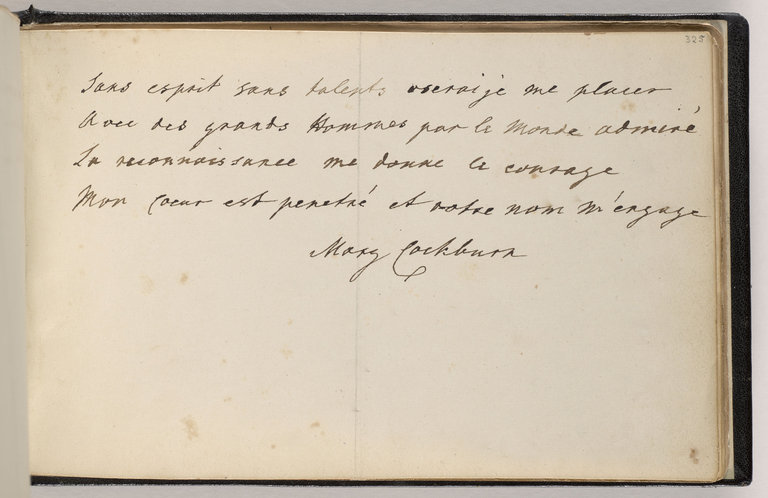 325
Sans esprit sans talents oseraije me placer
Avec des grands Hommes par le Monde admiré
La reconnaissance me donne le courage
Mon Coeur est penetré et votre nom m'engage
Mary Cockburn